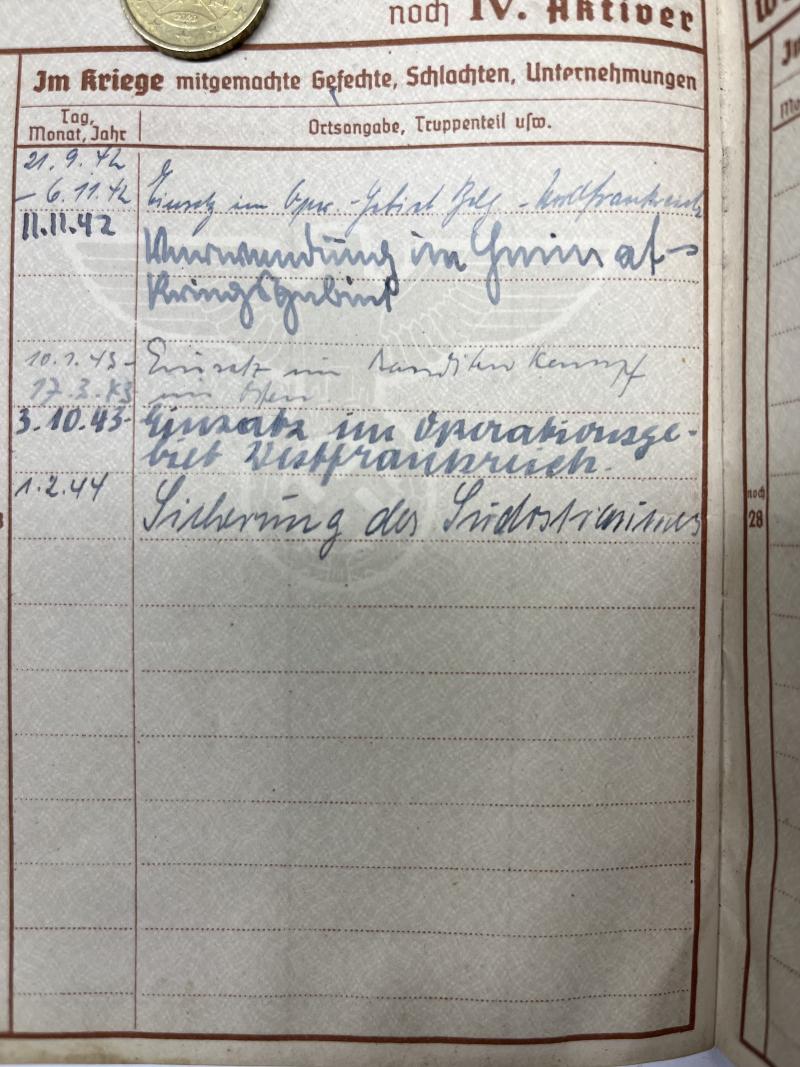 noch IV. Aktiver
Im Kriege mitgemachte Gefechte, Schlachten, Unternehmungen
Tag,
Monat, Jahr
Ortsangabe, Truppenteil usw.
21.9.42
- 6.11.42 Einsatz im Oper.-Gebiet Belg.-Nordfrankreich
11.11.42 Verwendung im Heimat-
Kriegsgebiet
10.1.43- Einsatz im Banditenkampf
17.3.43 im Osten.
3.10.43- Einsatz im Operationsge-
biet Westfrankreich.
1.2.44 Sicherung des Südostraumes
noch
28